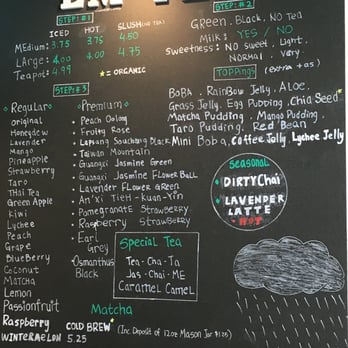 STEP: #1
ICED HOT SLUSH (NO TEA)
Medium: 3.75 3.75 4.50
LArge: 4.00 4.00 4.75
Teapot: 4.99
* = ORGANIC
STEP: #2
Green. Black. No Tea
Milk: YES / NO
Sweetness: No sweet. Light.
Normal. very.
TOPPINGS
(extra +.65)
BoBA. RainBow Jelly. ALOE.
Grass Jelly. Egg Pudding. Chia Seed
Matcha Pudding. Mango Pudding.
Taro Pudding. Red Bean
Mini Boba. Coffee Jelly. Lychee Jelly
STEP: #3
Regular
original
Honeydew
Lavender
Mango
Pineapple
Strawberry
Taro
THai Tea
Green Apple
Kiwi
Lychee
Peach
Grape
BlueBerry
Coconut
MATCHA
Lemon
Passionfruit
Raspberry
WINTERMELON
Premium
Peach Oolong
Fruity Rose
Lapsang Souchong Black
Taiwan Mountain
Guangxi Jasmine Green
Guangxi Jasmine Flower Ball
LAVENDER FLOWER GREEN
An'xi Tieh-Kuan-Yin
Pomegranate Strawberry
Raspberry Strawberry
Earl
Grey
Osmanthus
Black
Special Tea
Tea-Cha-Ta
Jas-Chai-ME
Caramel Camel
Seasonal
DIRTY Chai
LAVENDER
LATTE
HOT
Matcha
COLD BREW* (Inc Deposit of 12oz Mason Jar $1.25)
5.25